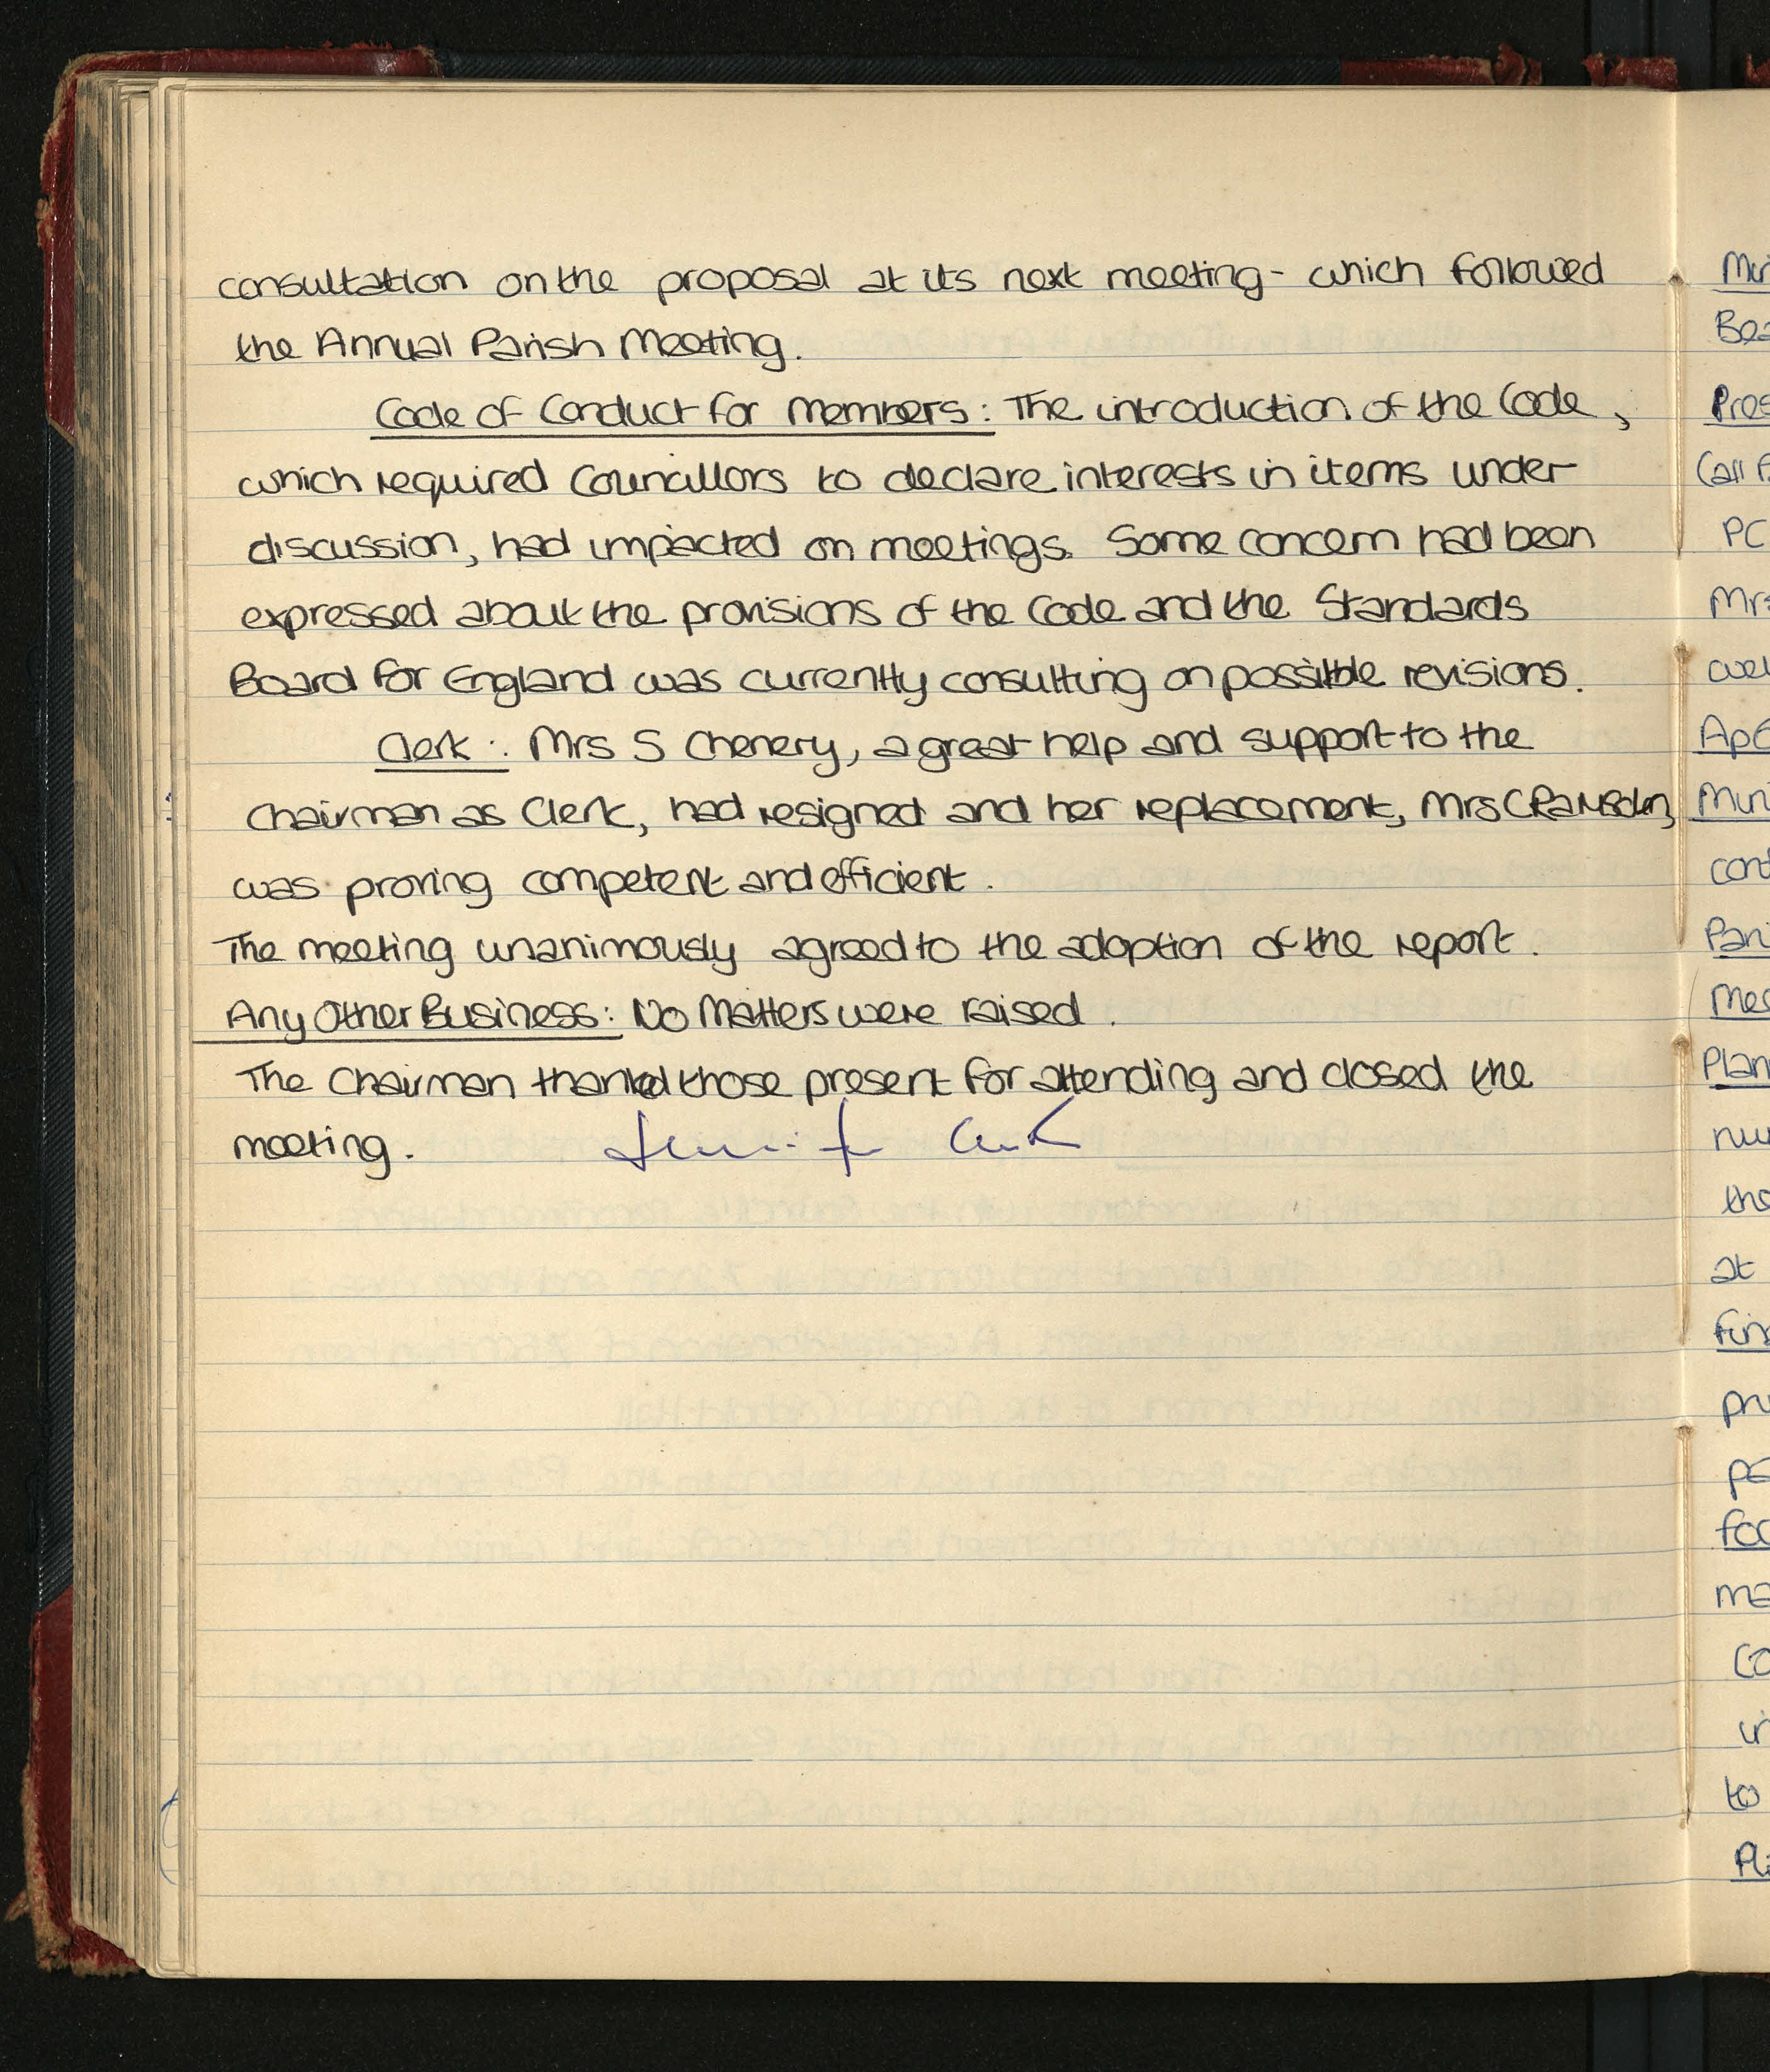 consultation on the proposal at its next meeting - which followed
the Annual Parish Meeting.
Code of Conduct for Members: The introduction of the Code,
which required Councillors to declare interests in items under
discussion, had impacted on meetings. Some concern had been
expressed about the provisions of the Code and the Standards
Board for England was currently consulting on possible revisions.
Clerk: Mrs S Chenery, a great help and support to the
Chairman as Clerk, had resigned and her replacement, Mrs C Ramsden,
was proving competent and efficient.
The meeting unanimously agreed to the adoption of the report.
Any Other Business: No Matters were raised.
The Chairman thanked those present for attending and closed the
meeting.
PC
at
to